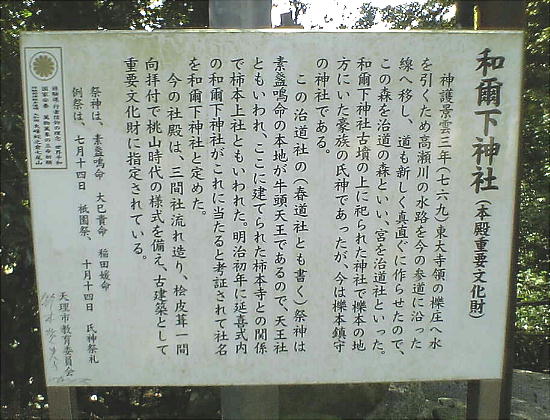 和爾下神社(本殿重要文化財)
神護景雲三年(七六九)東大寺領の櫟庄へ水
を引くため高瀬川の水路を今の参道に沿った
線へ移し、道も新しく真直ぐに作らせたので、
この森を治道の森といい、宮を治道社といった。
和爾下神社古墳の上に祀られた神社で櫟本の地
方にいた豪族の氏神であったが、今は櫟本鎮守
の神社である。
この治道社の(春道社とも書く)祭神は
素盞鳴命の本地が牛頭天王であるので、天王社
ともいわれ、ここに建てられた柿本寺との関係
で柿本上社ともいわれた。明治初年に延喜式内
の和爾下神社がこれに当たると考証されて社名
を和爾下神社と定めた。
今の社殿は、三間社流れ造り、桧皮葺一間
向拝付で桃山時代の様式を備え、古建築として
重要文化財に指定されている。
祭神は、素盞鳴命 大己貴命 稲田媛命
例祭は、七月十四日 祇園祭、 十月十四日 氏神祭礼
天理市教育委員会